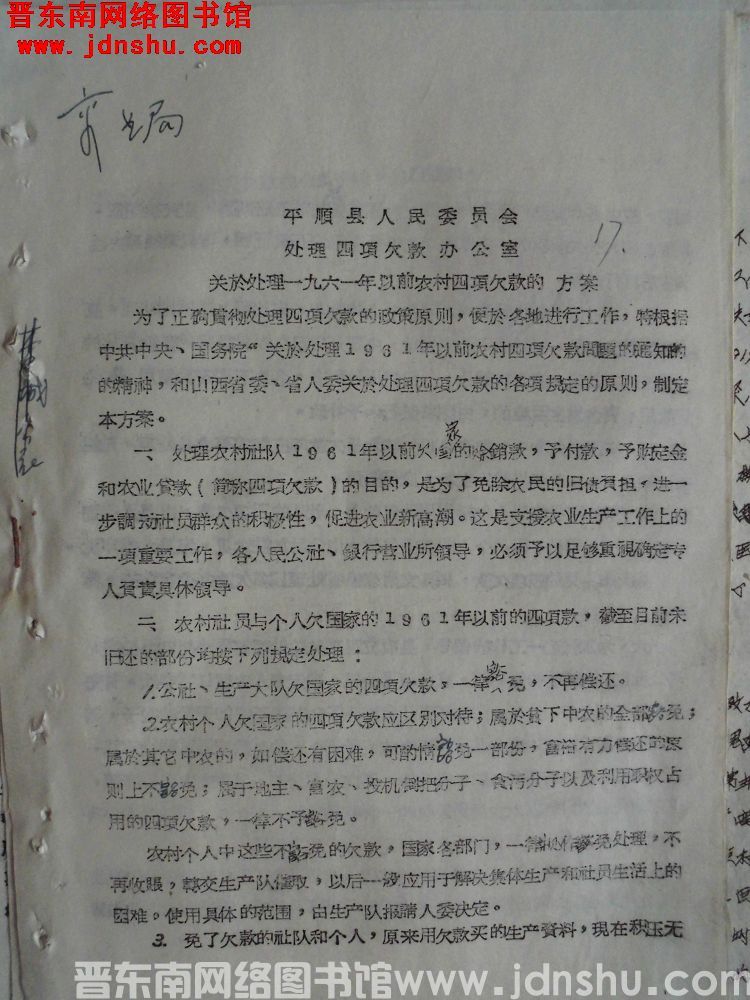 晋东南网络图书馆
www.jdnshu.com
平顺县人民委员会
处理四项欠款办公室
17.
关於处理一九六一年以前农村四项欠款的 方案
为了正确贯彻处理四项欠款的政策原则，便於各地进行工作，特根据
中共中央、国务院“关於处理1961年以前农村四项欠款问题的通知的
的精神，和山西省委、省人委关於处理四项欠款的各项规定的原则，制定
本方案。
一、处理农村社队1961年以前欠国家的赊銷款，予付款，予购定金
和农业贷款（简称四项欠款）的目的，是为了免除农民的旧债負担，进一
步調动社员群众的积极性，促进农业新高潮。这是支援农业生产工作上的
一项重要工作，各人民公社、银行营业所领导，必须予以足够重視确定专
人負責具体领导。
二、农村社员与个人欠国家的1961年以前的四项款，截至目前未
旧还的部份均按下列規定处理：
1.公社、生产大队欠国家的四项欠款，一律豁免，不再偿还。
2.农村个人欠国家的四项欠款应区别对待；属於贫下中农的全部豁免；
属於其它中农的，如偿还有困难，可酌情豁免一部份，富裕有力偿还的原
则上不豁免；属于地主、富农、投机倒把分子、贪污分子以及利用职权占
用的四项欠款，一律不予豁免。
农村个人中这些不豁免的欠款，国家各部门，一律豁免处理，不
再收賬，轉交生产队催取，以后一般应用于解决集体生产和社员生活上的
困难。使用具体的范围，由生产队报請人委决定。
3. 免了欠款的社队和个人，原来用欠款买的生产資料，现在积压无
晋东南网络图书馆www.jdnshu.com